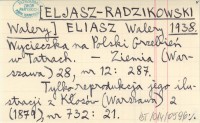 [ELJASZ-RADZIKOWSKI
Walery] ELIASZ Walery 1938.
Wycieczka na Polski Grzebień
w Tatrach. — Ziemia (War-
szawa) 28, nr 12: 287.
Tylko reprodukcja jego ilu-
stracji z Kłosów (Warszawa) 2
(1879) nr 732: 21.